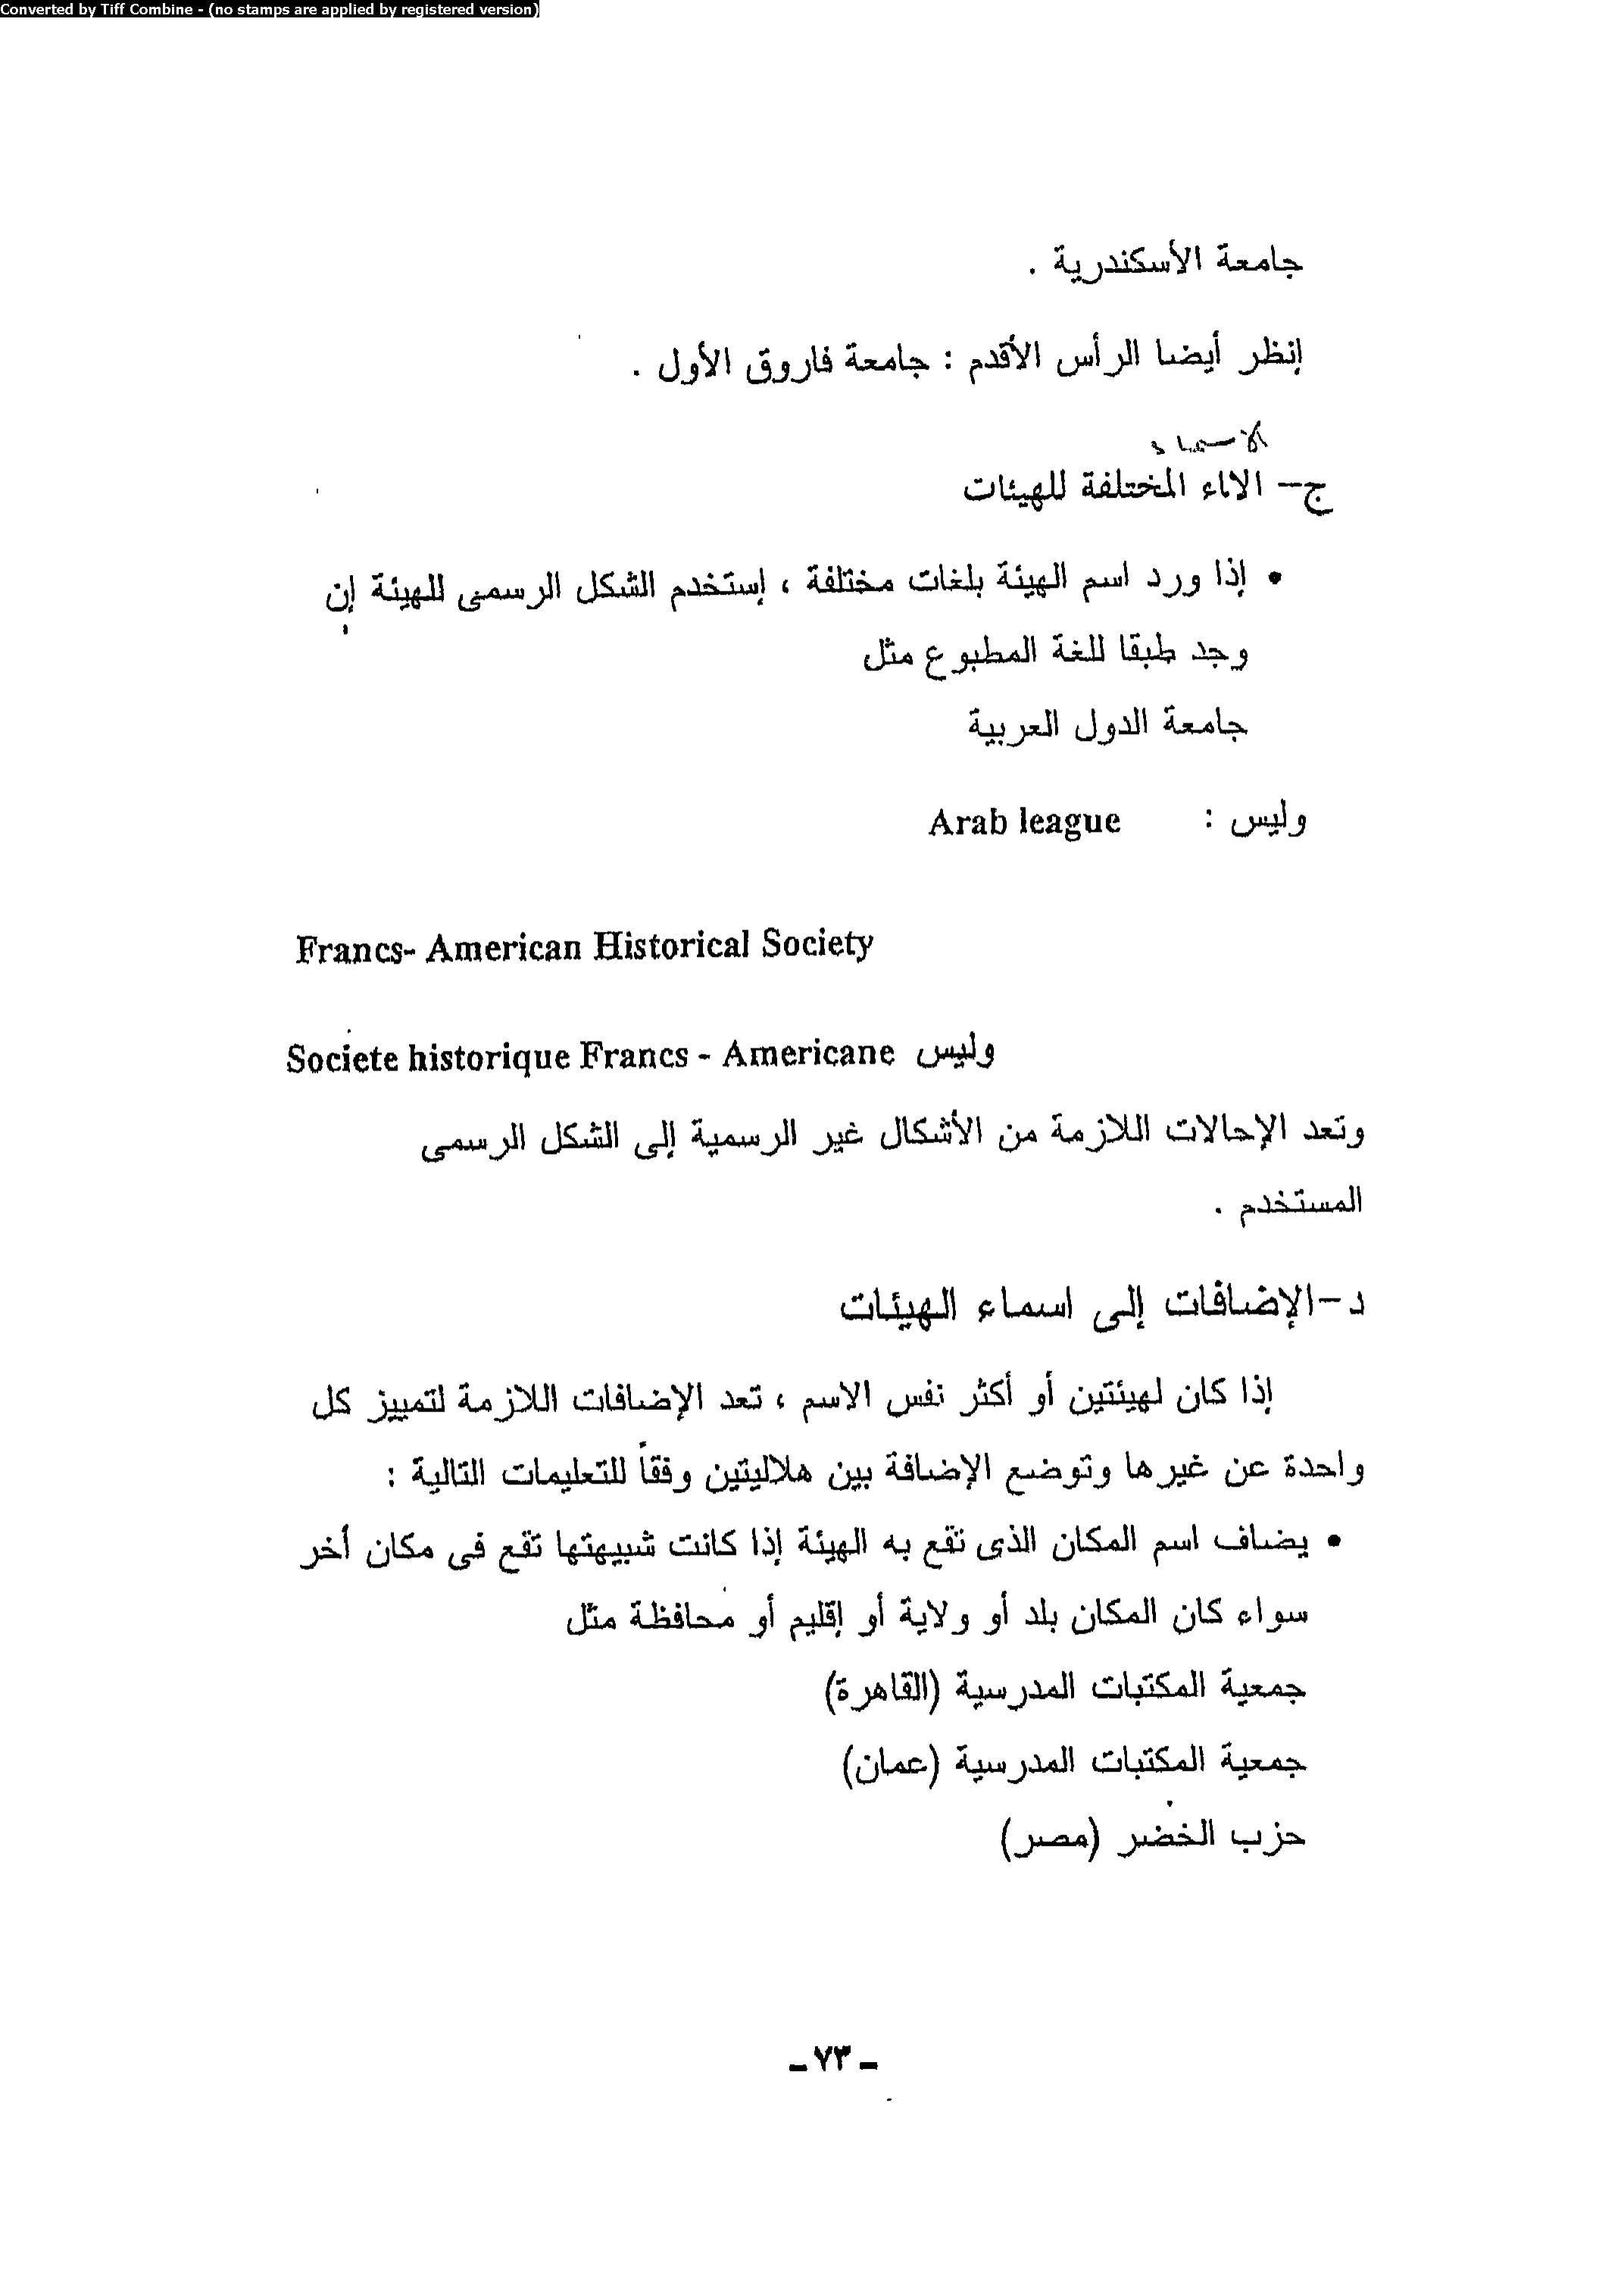 Converted by Tiff Combine - (no stamps are applied by registered version)
جامعة الأسكندرية .
إنظر أيضا الرأس الأقدم : جامعة فاروق الأول .
الاسماء
ج– الااء المختلفة للهيئات
• إذا ورد اسم الهيئة بلغات مختلفة ، إستخدم الشكل الرسمى للهيئة إن
وجد طبقا للغة المطبوع مثل
جامعة الدول العربية
وليس : Arab league
Francs- American Historical Society
وليس Societe historique Francs - Americane
وتعد الإحالات اللازمة من الأشكال غير الرسمية إلى الشكل الرسمى
المستخدم .
د–الإضافات إلى اسماء الهيئات
إذا كان لهيئتين أو أكثر نفس الاسم ، تعد الإضافات اللازمة لتمييز كل
واحدة عن غيرها وتوضع الإضافة بين هلاليتين وفقاً للتعليمات التالية :
• يضاف اسم المكان الذى تقع به الهيئة إذا كانت شبيهتها تقع فى مكان أخر
سواء كان المكان بلد أو ولاية أو إقليم أو محافظة مثل
جمعية المكتبات المدرسية (القاهرة)
جمعية المكتبات المدرسية (عمان)
حزب الخضر (مصر)
– ٧٣ –